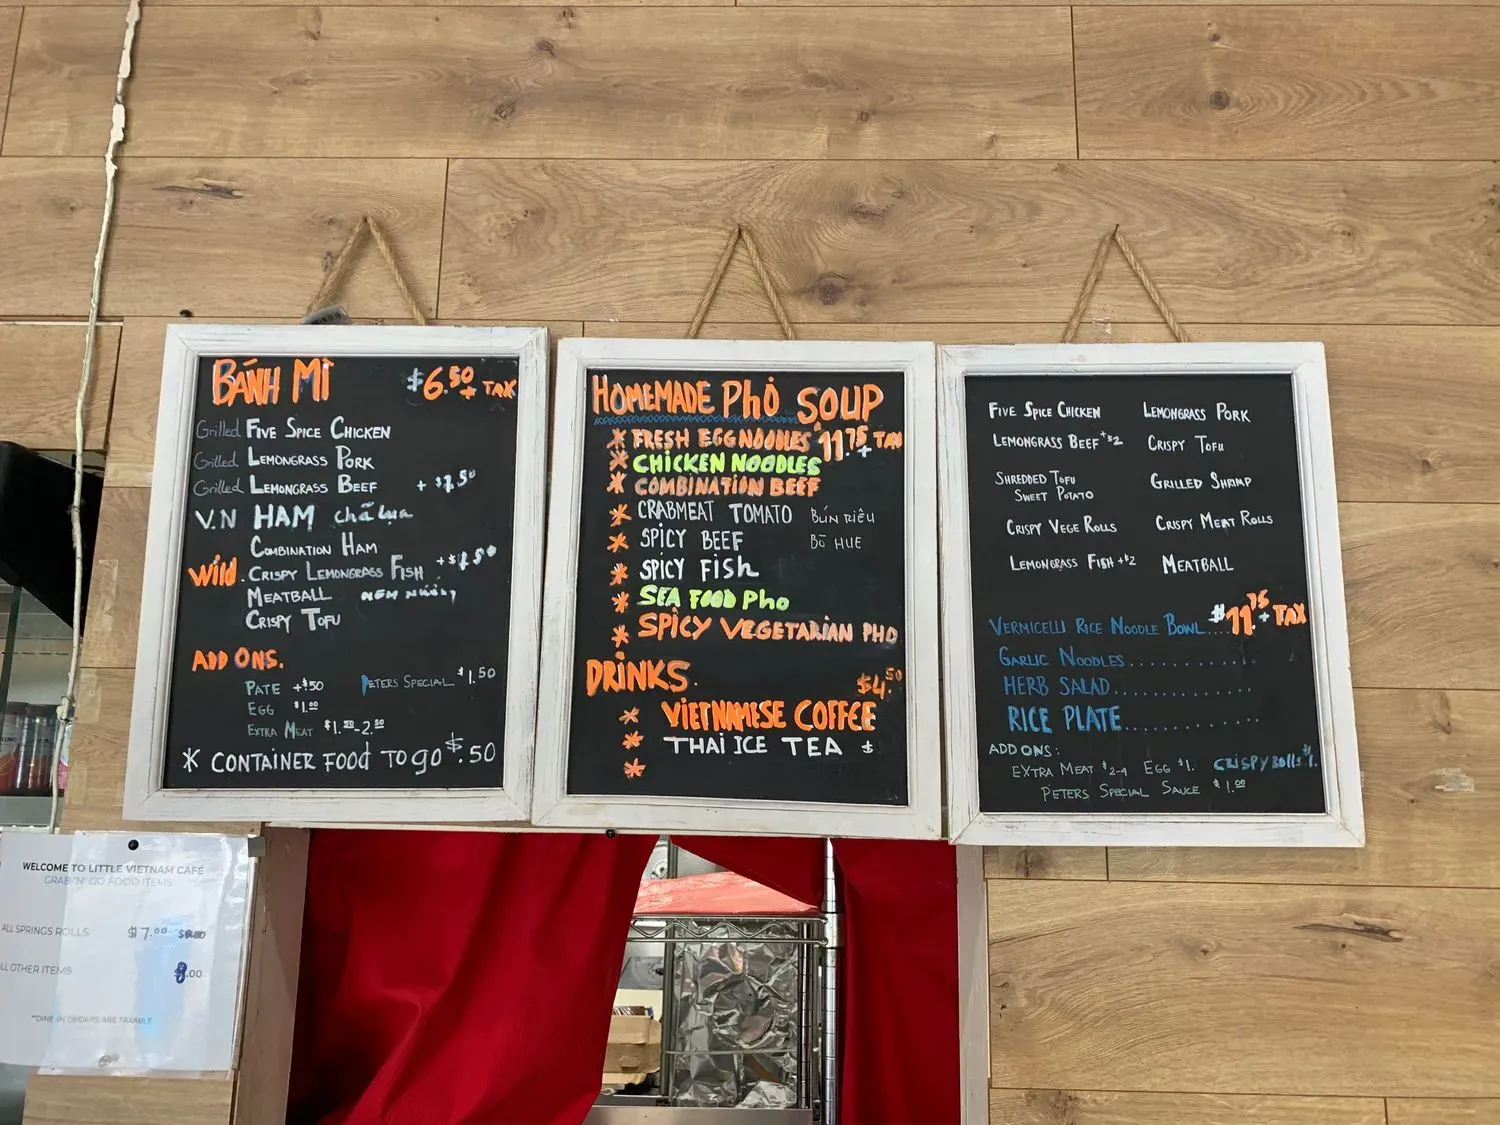 BÁNH MÌ $6.50 + TAX
Grilled FIVE SPICE CHICKEN
Grilled LEMONGRASS PORK
Grilled LEMONGRASS BEEF + $1.50
V.N HAM chả lụa
COMBINATION HAM
Wild. CRISPY LEMONGRASS FISH +$1.50
MEATBALL NEM NƯỚNG
CRISPY TOFU
ADD ONS.
PATE +$.50 PETERS SPECIAL $1.50
EGG $1.00
EXTRA MEAT $1.50-2.50
* CONTAINER FOOD TO GO $.50
HOMEMADE PHỞ SOUP
* FRESH EGG NOODLES $11.75 + TAX
* CHICKEN NOODLES
* COMBINATION BEEF
* CRABMEAT TOMATO BÚN RIÊU
* SPICY BEEF BÒ HUE
* SPICY FISH
* SEA FOOD PHO
* SPICY VEGETARIAN PHO
DRINKS. $4.50
* VIETNAMESE COFFEE
* THAI ICE TEA
*
FIVE SPICE CHICKEN LEMONGRASS PORK
LEMONGRASS BEEF +$2 CRISPY TOFU
SHREDDED TOFU
SWEET POTATO
GRILLED SHRIMP
CRISPY VEGE ROLLS CRISPY MEAT ROLLS
LEMONGRASS FISH +$2 MEATBALL
VERMICELLI RICE NOODLE BOWL.... $11.75 + TAX
GARLIC NOODLES...........
HERB SALAD.............
RICE PLATE............
ADD ONS:
EXTRA MEAT $2-4 EGG $1. CRISPY ROLLS $1.
PETERS SPECIAL SAUCE $1.00
WELCOME TO LITTLE VIETNAM CAFÉ
GRAB 'N' GO FOOD ITEMS
ALL SPRINGS ROLLS $7.00
ALL OTHER ITEMS 8.00
**DINE IN ORDERS ARE TAXABLE